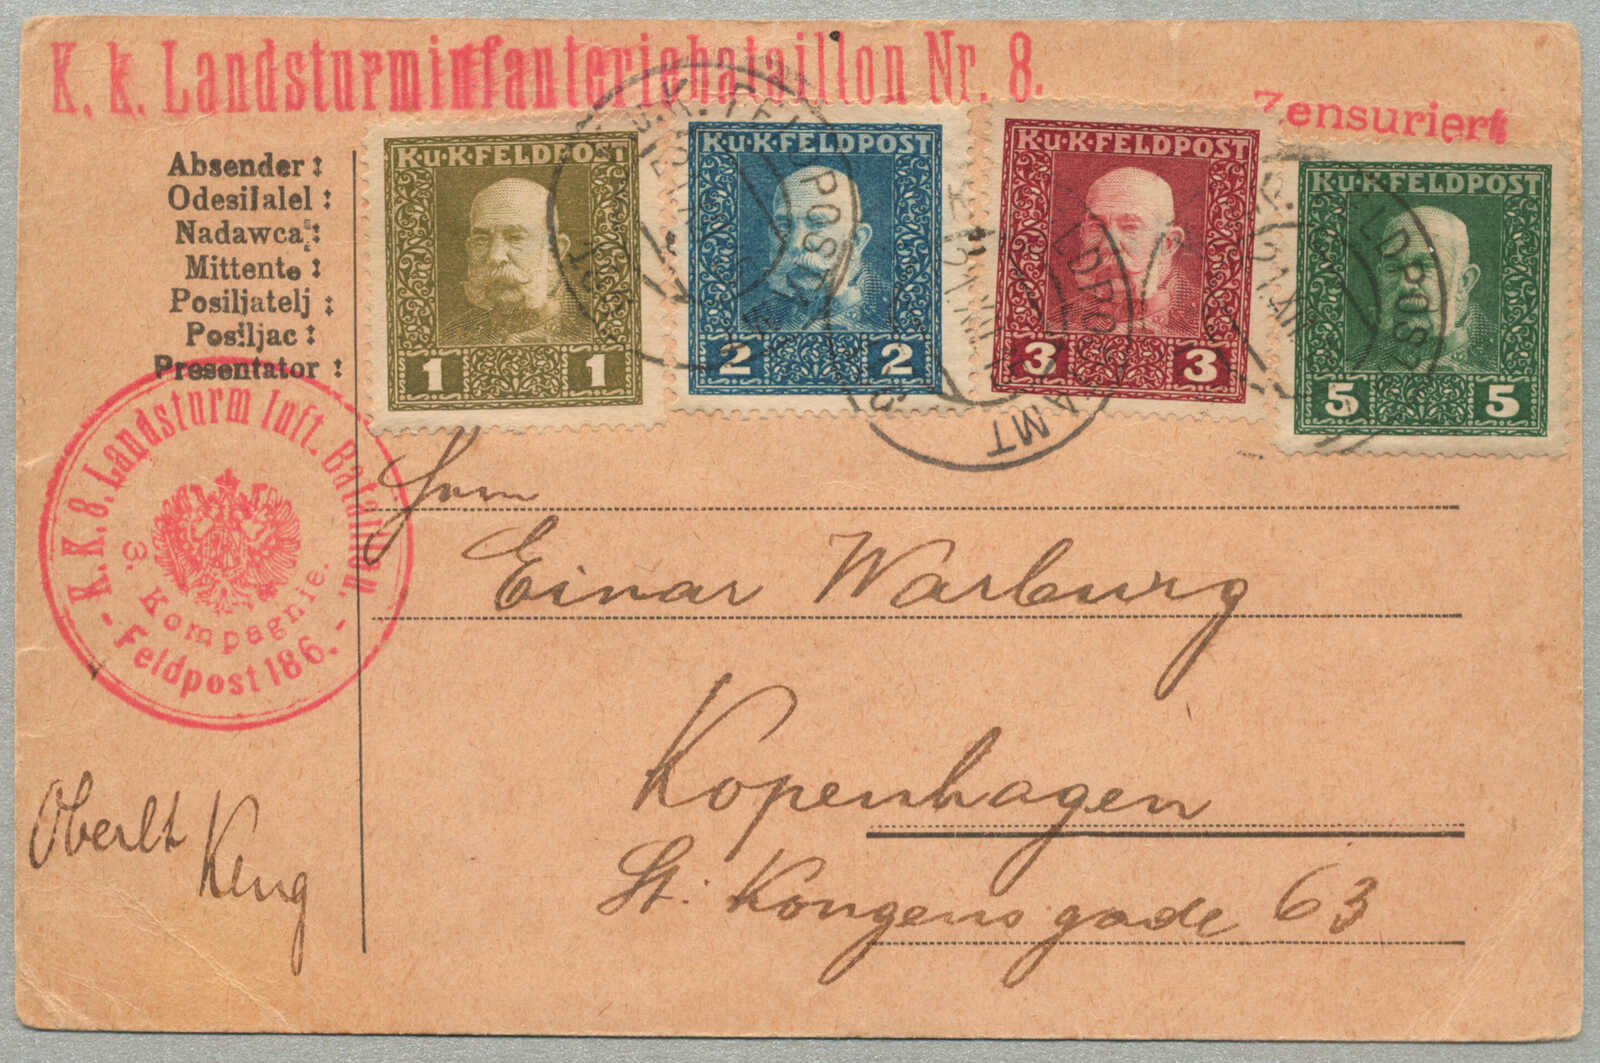 K. k. Landsturminfanteriebataillon Nr. 8.
Zensuriert
Absender:
Odesílatel:
Nadawca:
Mittente:
Posiljatelj:
Posiljac:
Presentator:
K·u·K·FELDPOST
1 1
K·u·K·FELDPOST
2 2
K·u·K·FELDPOST
3 3
K·u·K·FELDPOST
5 5
K.K. 8. Landsturm Inft. Bataillon.
3. Kompagnie.
- Feldpost 186. -
Einar Warburg
Kopenhagen
St. Kongensgade 63
Oberlt